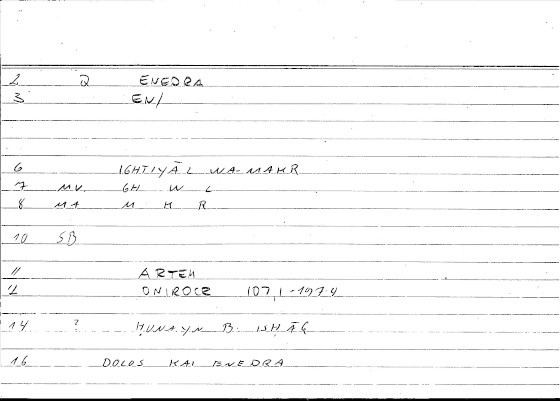 2 Q ENEDRA
3 EN/
6 IGHTIYĀL WA-MAKR
7 MU. GH W L
8 MA M K R
10 SB
11 ARTEM
12 ONIROCR 107,1-1974
14 ? ḤUNAYN B. ISḤĀQ
16 DOLOS KAI ENEDRA